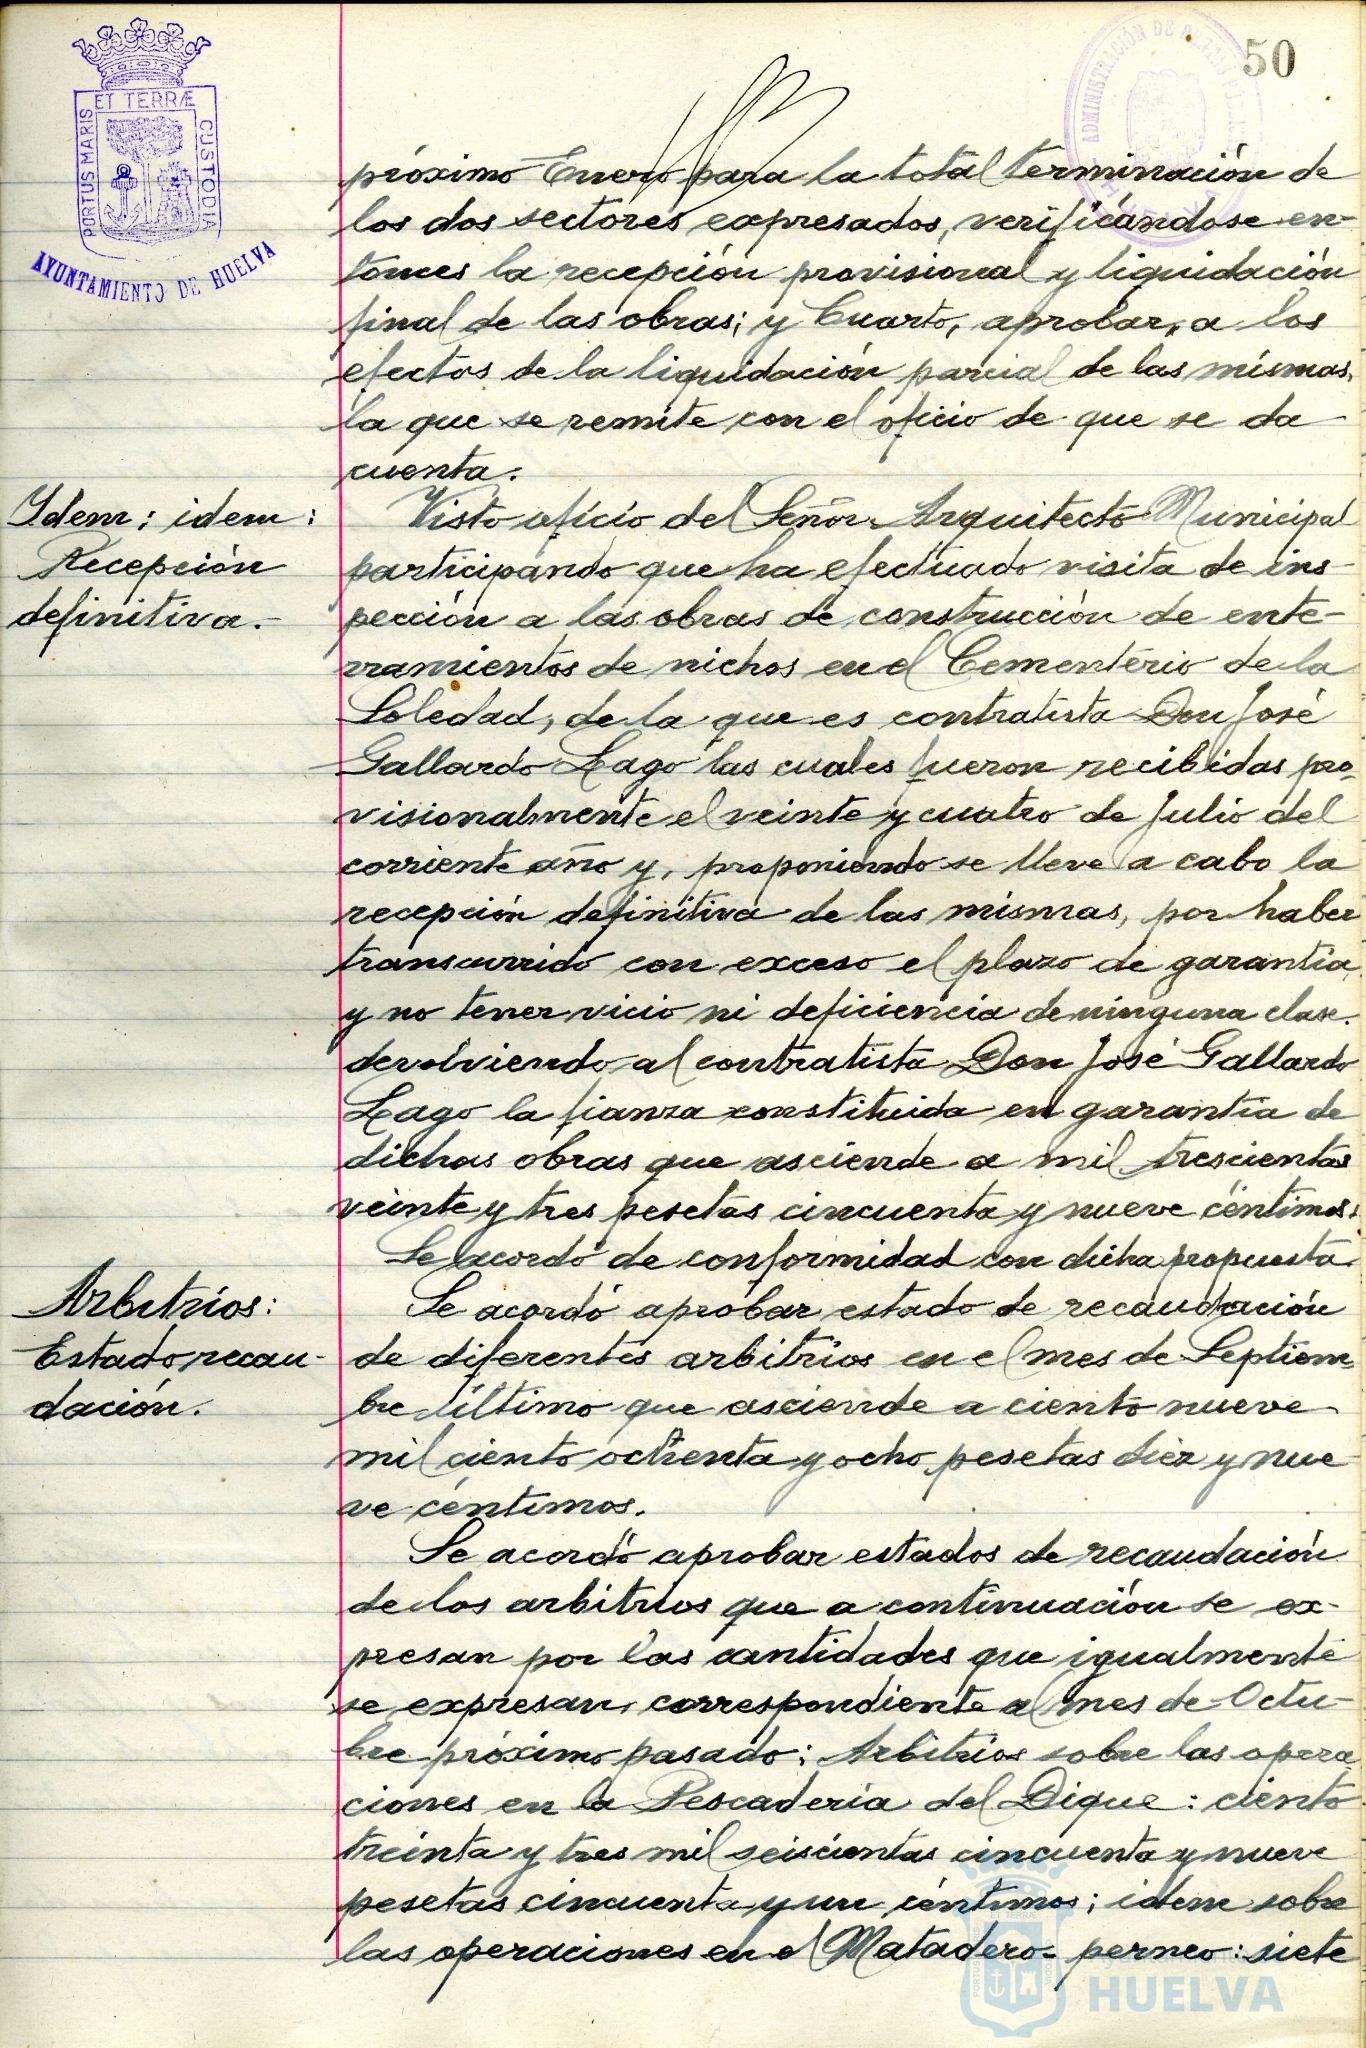 50
ET TERRÆ
PORTUS MARIS
CUSTODIA
AYUNTAMIENTO DE HUELVA
ADMINISTRACIÓN DE
próximo Enero para la total terminación de
los dos sectores expresados, verificándose en-
tonces la recepción provisional y liquidación
final de las obras; y Cuarto, aprobar, a los
efectos de la liquidación parcial de las mismas,
la que se remite con el oficio de que se da
cuenta.
Idem: idem:
Recepción
definitiva.-
Visto oficio del Señor Arquitecto Municipal
participando que ha efectuado visita de ins-
pección a las obras de construcción de ente-
rramientos de nichos en el Cementerio de la
Soledad, de la que es contratista Don José
Gallardo Lago las cuales fueron recibidas pro-
visionalmente el veinte y cuatro de Julio del
corriente año y, proponiendo se lleve a cabo la
recepción definitiva de las mismas, por haber
transcurrido con exceso el plazo de garantía,
y no tener vicio ni deficiencia de ninguna clase.
devolviendo al contratista Don José Gallardo
Lago la fianza constituida en garantía de
dichas obras que asciende a mil trescientas
veinte y tres pesetas cincuenta y nueve céntimos.
Se acordó de conformidad con dicha propuesta.
Arbitrios:
Estado recau-
dación.
Se acordó aprobar estado de recaudación
de diferentes arbitrios en el mes de Septiem-
bre último que asciende a ciento nueve
mil ciento ochenta y ocho pesetas diez y nue
ve céntimos.
Se acordó aprobar estados de recaudación
de los arbitrios que a continuación se ex-
presan por las cantidades que igualmente
se expresan, correspondiente al mes de Octu-
bre próximo pasado: Arbitrios sobre las opera
ciones en la Pescadería del Dique: ciento
treinta y tres mil seiscientas cincuenta y nueve
pesetas cincuenta y un céntimos; idem sobre
las operaciones en el Matadero- perneo: siete
HUELVA